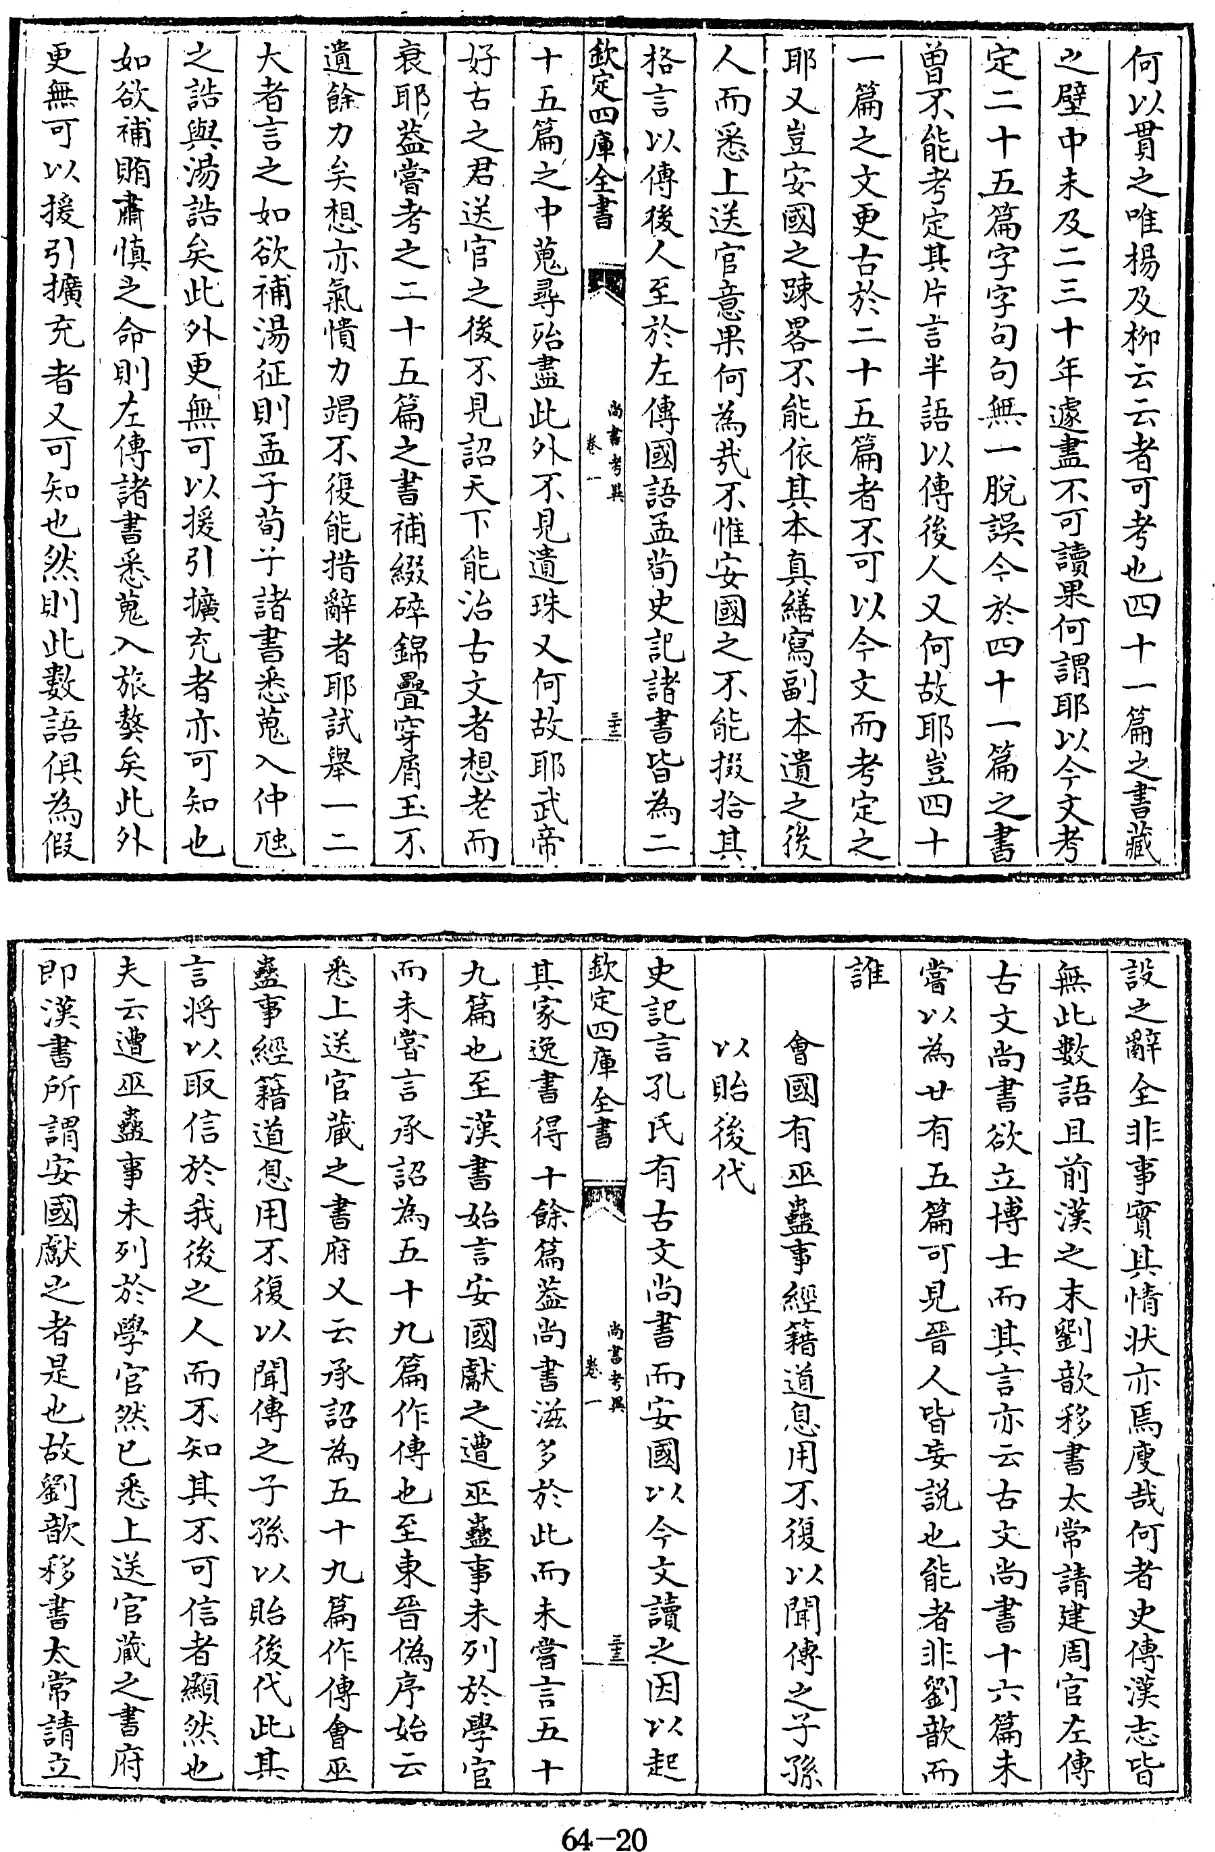 何以貫之唯揚及柳云云者可考也四十一篇之書藏
之壁中未及二三十年遽盡不可讀果何謂耶以今文考
定二十五篇字字句句無一脫誤今於四十一篇之書
曾不能考定其片言半語以傳後人又何故耶豈四十
一篇之文更古於二十五篇者不可以今文而考定之
耶又豈安國之踈畧不能依其本真繕寫副本遺之後
人而悉上送官意果何為哉不惟安國之不能掇拾其
格言以傳後人至於左傳國語孟荀史記諸書皆為二
欽定四庫全書
尚書考異
卷一
三十二
十五篇之中蒐尋殆盡此外不見遺珠又何故耶武帝
好古之君送官之後不見詔天下能治古文者想老而
衰耶葢嘗考之二十五篇之書補綴碎錦疊穿屑玉不
遺餘力矣想亦氣憤力竭不復能措辭者耶試舉一二
大者言之如欲補湯征則孟子荀子諸書悉蒐入仲虺
之誥與湯誥矣此外更無可以援引擴充者亦可知也
如欲補賄肅慎之命則左傳諸書悉蒐入旅獒矣此外
更無可以援引擴充者又可知也然則此數語俱為假
設之辭全非事實其情状亦焉廋哉何者史傳漢志皆
無此數語且前漢之末劉歆移書太常請建周官左傳
古文尚書欲立博士而其言亦云古文尚書十六篇未
嘗以為廿有五篇可見晉人皆妄説也能者非劉歆而
誰
會國有巫蠱事經籍道息用不復以聞傳之子孫
以貽後代
史記言孔氏有古文尚書而安國以今文讀之因以起
欽定四庫全書
尚書考異
卷一
三十三
其家逸書得十餘篇葢尚書滋多於此而未嘗言五十
九篇也至漢書始言安國獻之遭巫蠱事未列於學官
而未嘗言承詔為五十九篇作傳也至東晉偽序始云
悉上送官藏之書府又云承詔為五十九篇作傳會巫
蠱事經籍道息用不復以聞傳之子孫以貽後代此其
言將以取信於我後之人而不知其不可信者顯然也
夫云遭巫蠱事未列於學官然已悉上送官藏之書府
即漢書所謂安國獻之者是也故劉歆移書太常請立
64-20